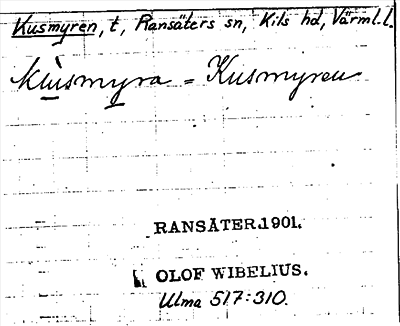 Kusmyren, t, Ransäters sn, Kils hd, Värml.l.
kùsmyra = Kusmyren
RANSÄTER.1901.
OLOF WIBELIUS.
Ulma 517:310.